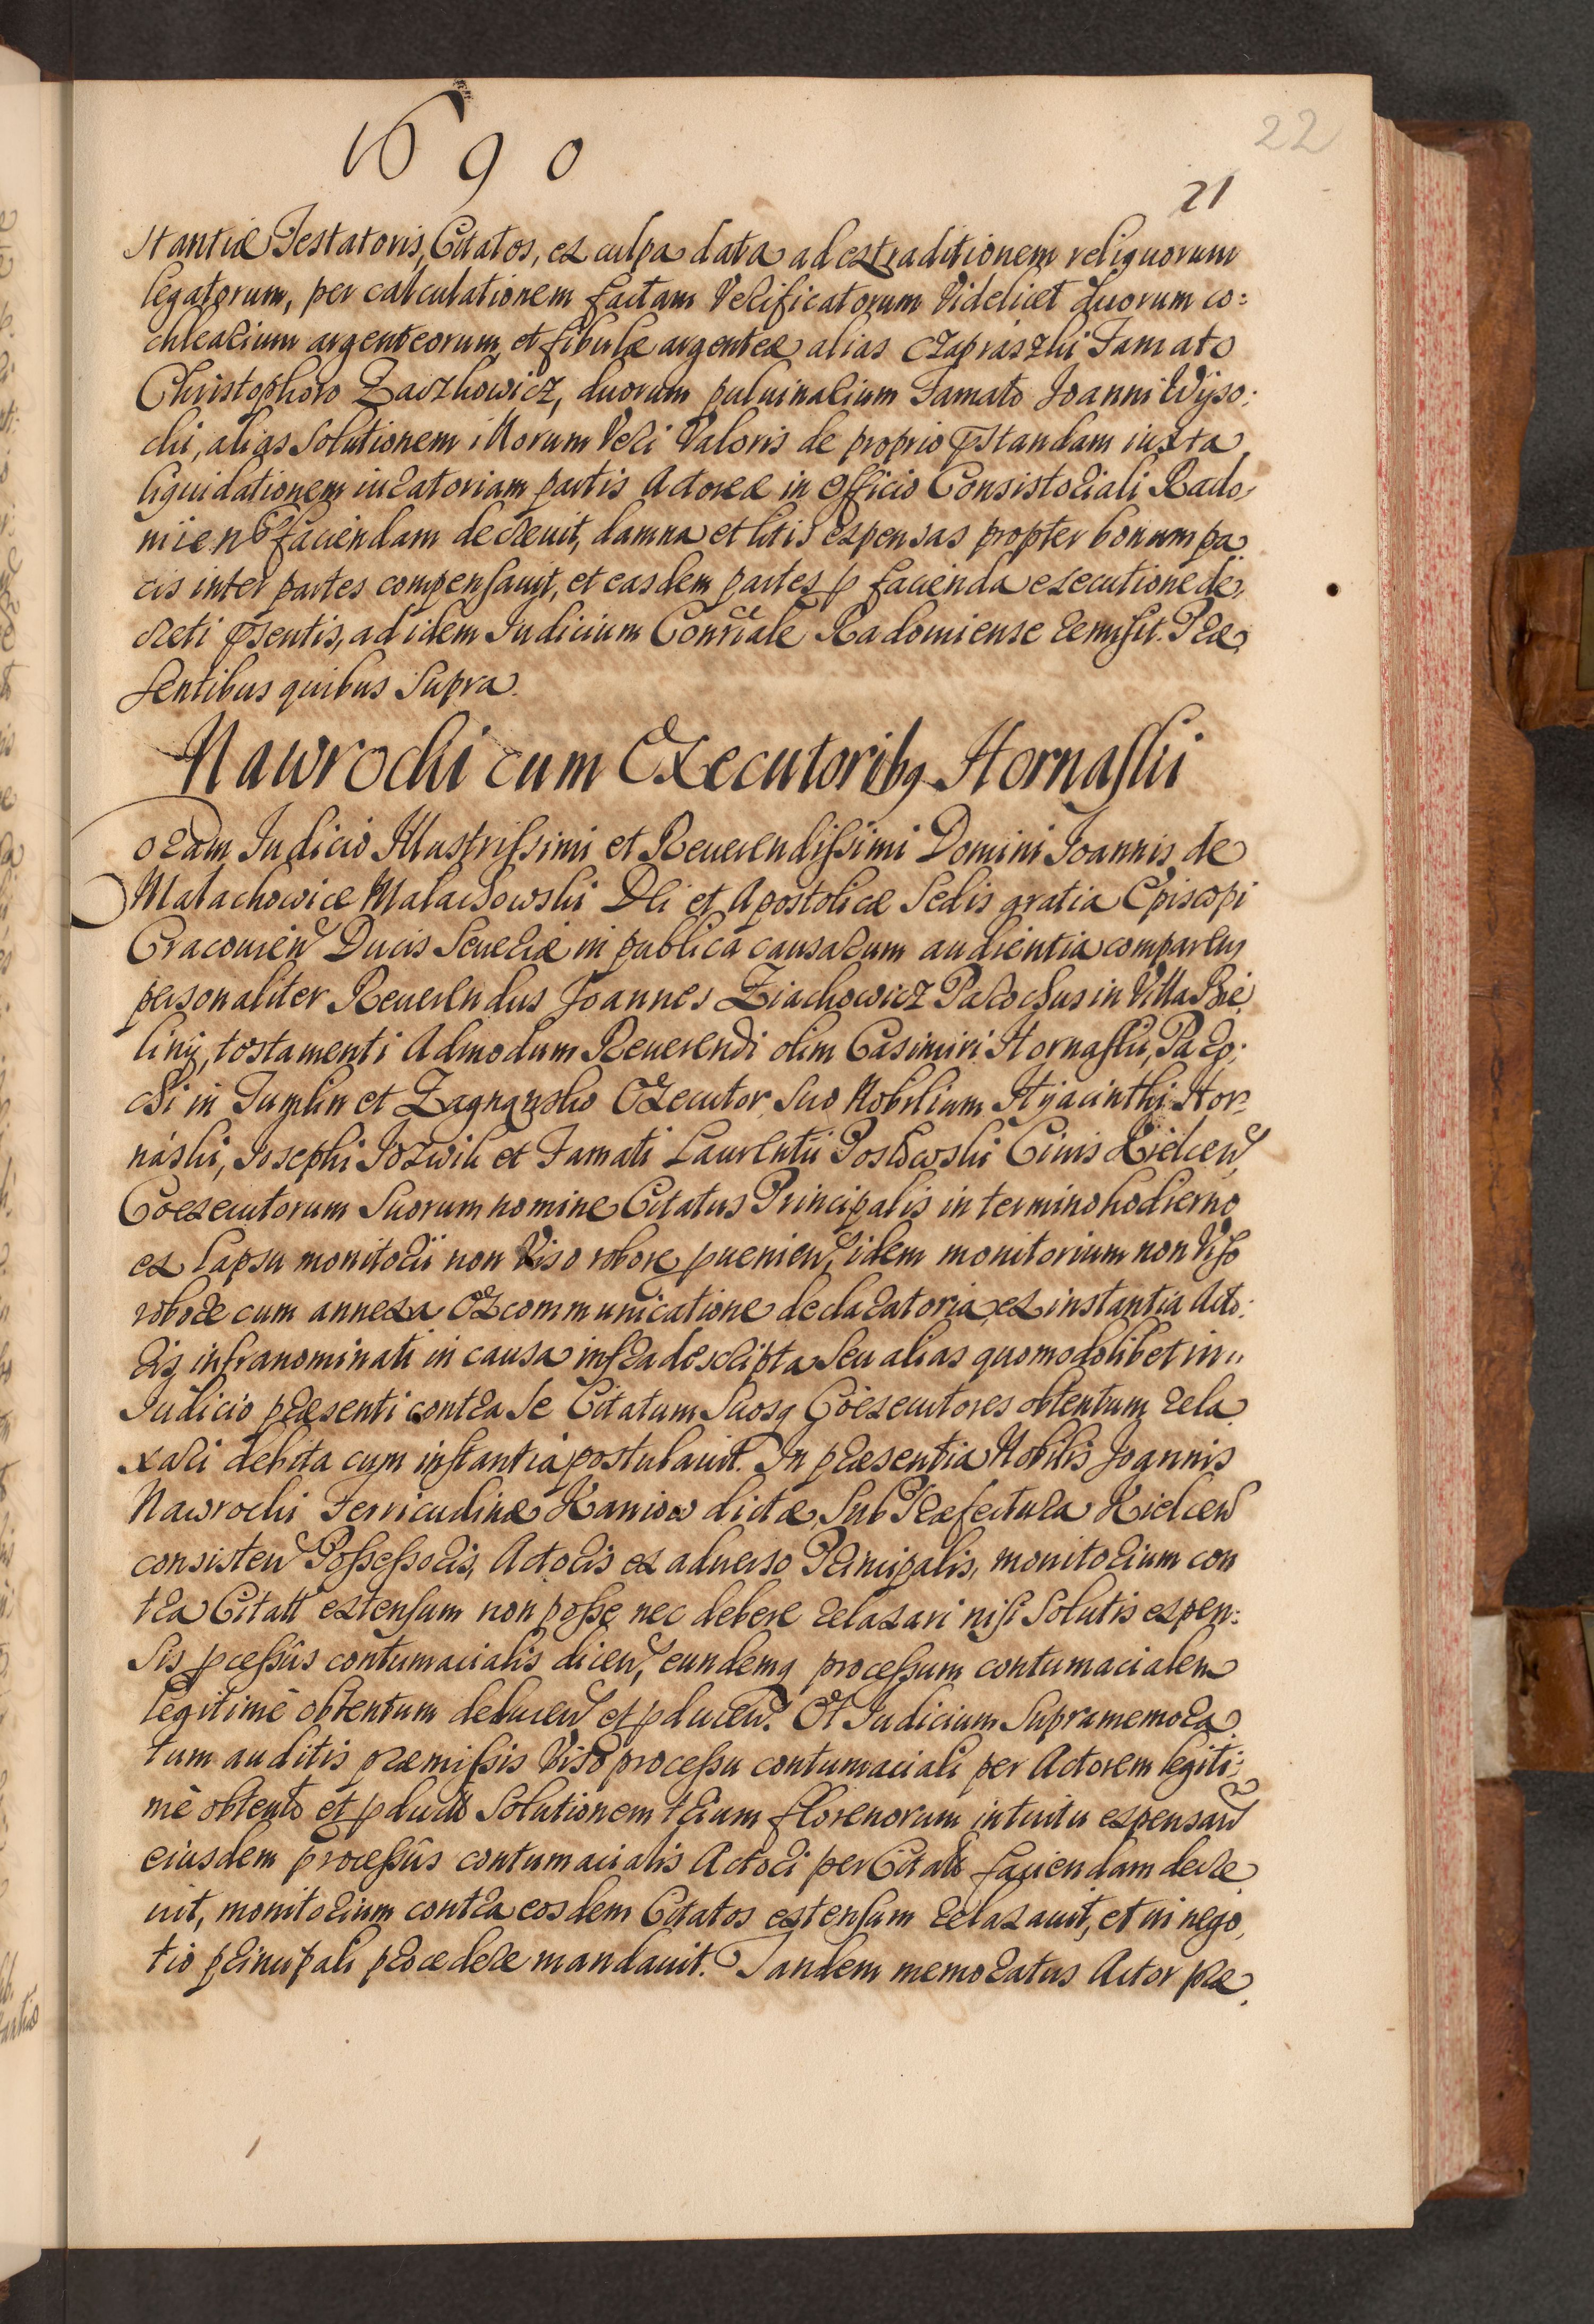 1690
22
21
stantiæ Testatoris, Citatos, ex culpa data ad extraditionem reliquorum
legatorum, per calculationem factam Verificatorum videlicet duorum co:
chlearium argenteorum et fibulæ argenteæ alias czapraszki Famato
Christophoro Zaczkowicz, duorum puluinarium Famato Joanni Wyso:
cki, alias solutionem illorum Veri Valoris de proprio pstandam iuxta
liquidationem iuratoriam partis Actoreæ in officio Consistoriali Rado,
mien faciendam decreuit, damna et litis expensas propter bonum pa
cis inter partes compensauit, et easdem partes p facienda executione de,
creti psentis, ad idem Iudicium Conrīale Radomiense remisit. Præ
sentibus quibus supra.
Nawrocki cum Executoribq Hornaski
Coram Iudicio Illustrissimi et Reuerendissimi Domini Joannis de
Małachowice Małachowski Dei et Apostolicæ Sedis gratia Episcopi
Cracouien Ducis Seueriæ in publica causarum audientia comparens
personaliter Reuerendus Joannes Ziachowicz Parochus in Villa Bie
liny, testamenti Admodum Reuerendi olim Casimiri Hornaski, Paro:
chi in Tumlin et Zagnansko Executor suo Nobilium Hyacinthi Hor:
náski, Josephi Jozwik et Famati Laurentii Posłowski Ciuis Kielcen
Coexecutorum suorum nomine Citatus Principalis in termino hodierno
ex lapsu monitorii non Viso robore pueniend, idem monitorium non Viso
robore cum annexa Excommunicatione declaratoria, ex instantia Acto:
ris infranominati in causa infra descripta seu alias quomodolibet in
Iudicio præsenti contra se Citatum suosq Coexecutores obtentum rela
xari debita cum instantia postulauit. In præsentia Nobilis Joannis
Nawrocki Ferricudinæ Kaniow dictæ, sub Præfectura Kielcen
consisten Possessoris, Actoris ex aduerso Principalis, monitorium con
tra Citatt extensum non posse nec debere relaxari nisi solutis expen:
sis pcessûs contumacialis dicen, eundemq processum contumacialem
legitimè obtentum deducen et pducen. Et Iudicium supramemora
tum auditis præmissis Viso processu contumaciali per Actorem legiti:
mè obtento et pducto solutionem trium florenorum intuitu expensaru
eiusdem processûs contumacialis Actori per Citatt faciendam decre
uit, monitorium contra eosdem Citatos extensum relaxauit, et in nego,
tio principali procedere mandauit. Tandem memoratus Actor præ